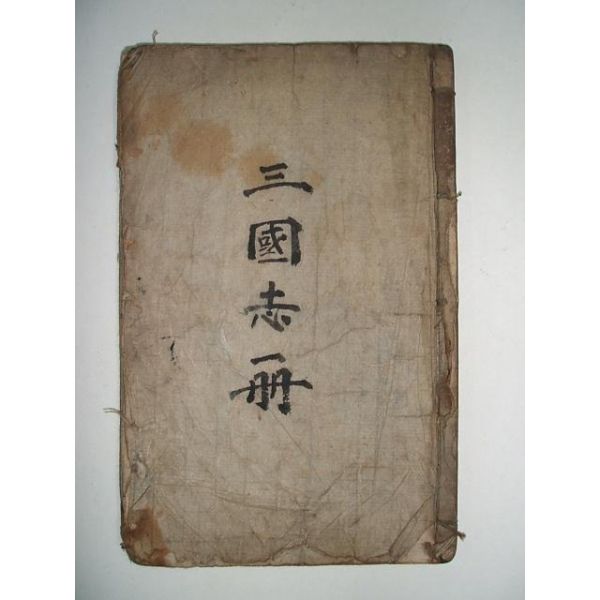 三國志一册